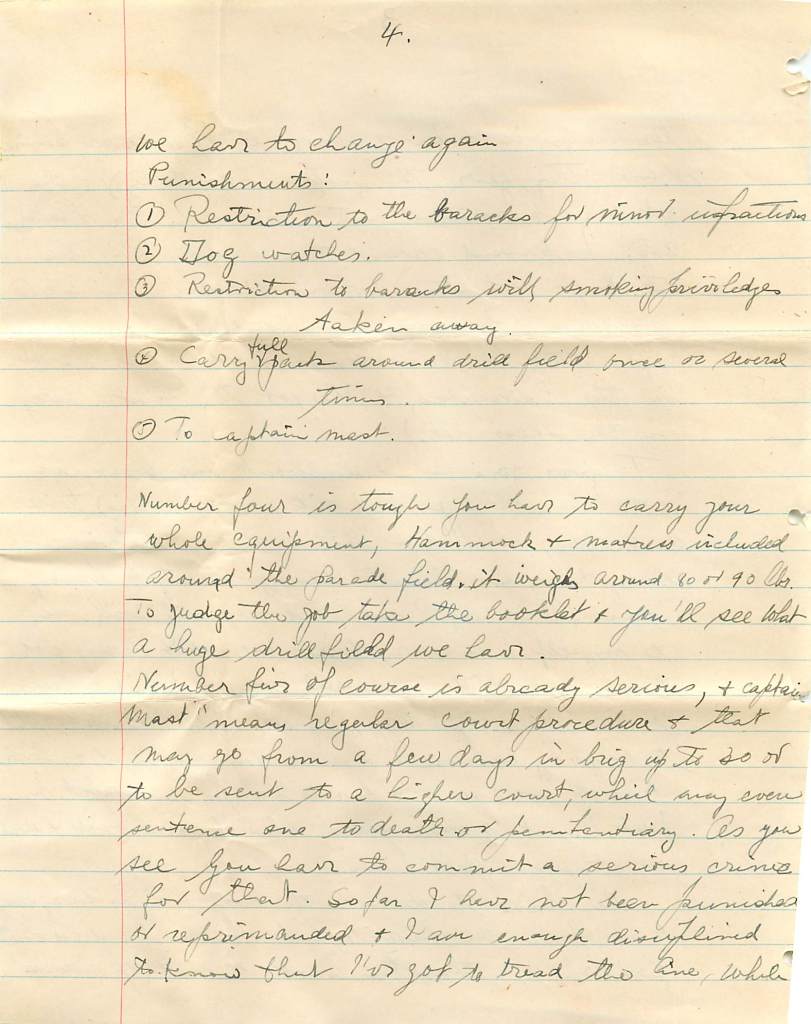 4.
we have to change again
Punishments:
① Restriction to the baracks for minor infractions
② Dog watches.
③ Restriction to baracks with smoking priviledges
taken away.
④ Carry full pack around drill field once or several
times.
⑤ To captain mast.
Number four is tough you have to carry your
whole equipment, Hammock + matress included
around the parade field. it weighs around 80 or 90 lbs.
To judge the job take the booklet + you'll see what
a huge drill field we have.
Number five of course is already serious, + captain
mast" means regular court procedure + that
may go from a few days in brig up to 30 or
to be sent to a higher court, which may even
sentence one to death or penitentiary. As you
see you have to commit a serious crime
for that. So far I have not been punished
or reprimanded + I am enough disciplined
to know that I've got to tread the line, while